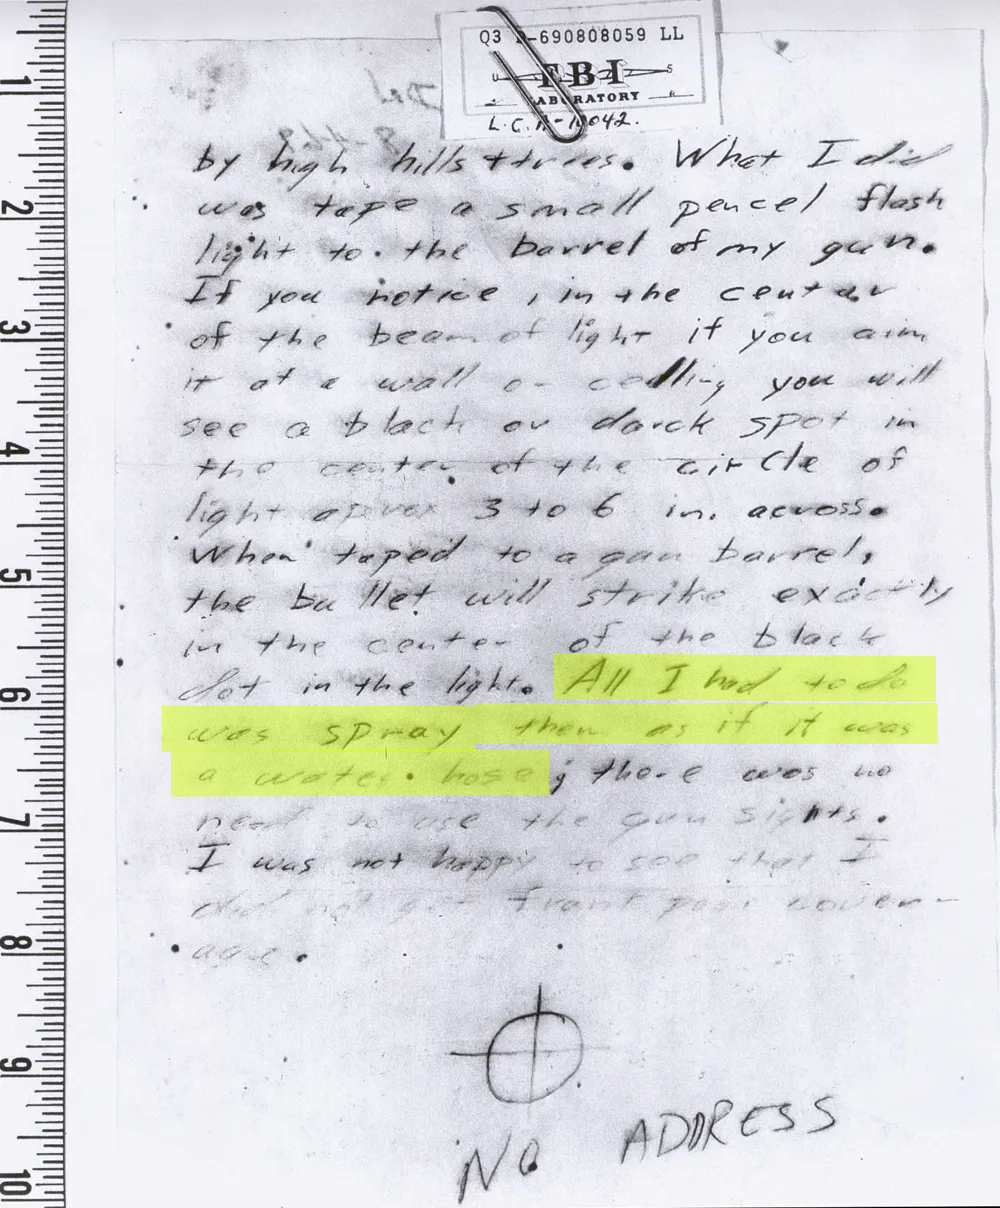 Q3 D-690808059 LL
FBI
LABORATORY
by high hills + trees. What I did
was tape a small pencel flash
light to the barrel of my gun.
If you notice, in the center
of the beam of light if you aim
it at a wall or celling you will
see a black or darck spot in
the center of the circle of
light aprox 3 to 6 in. across.
When taped to a gun barrel,
the bullet will strike exactly
in the center of the black
dot in the light. All I had to do
was spray them as if it was
a water hose; there was no
need to use the gun sights.
I was not happy to see that I
did not get front page cover-
age.
NO ADDRESS
1
2
3
4
5
6
7
8
9
10